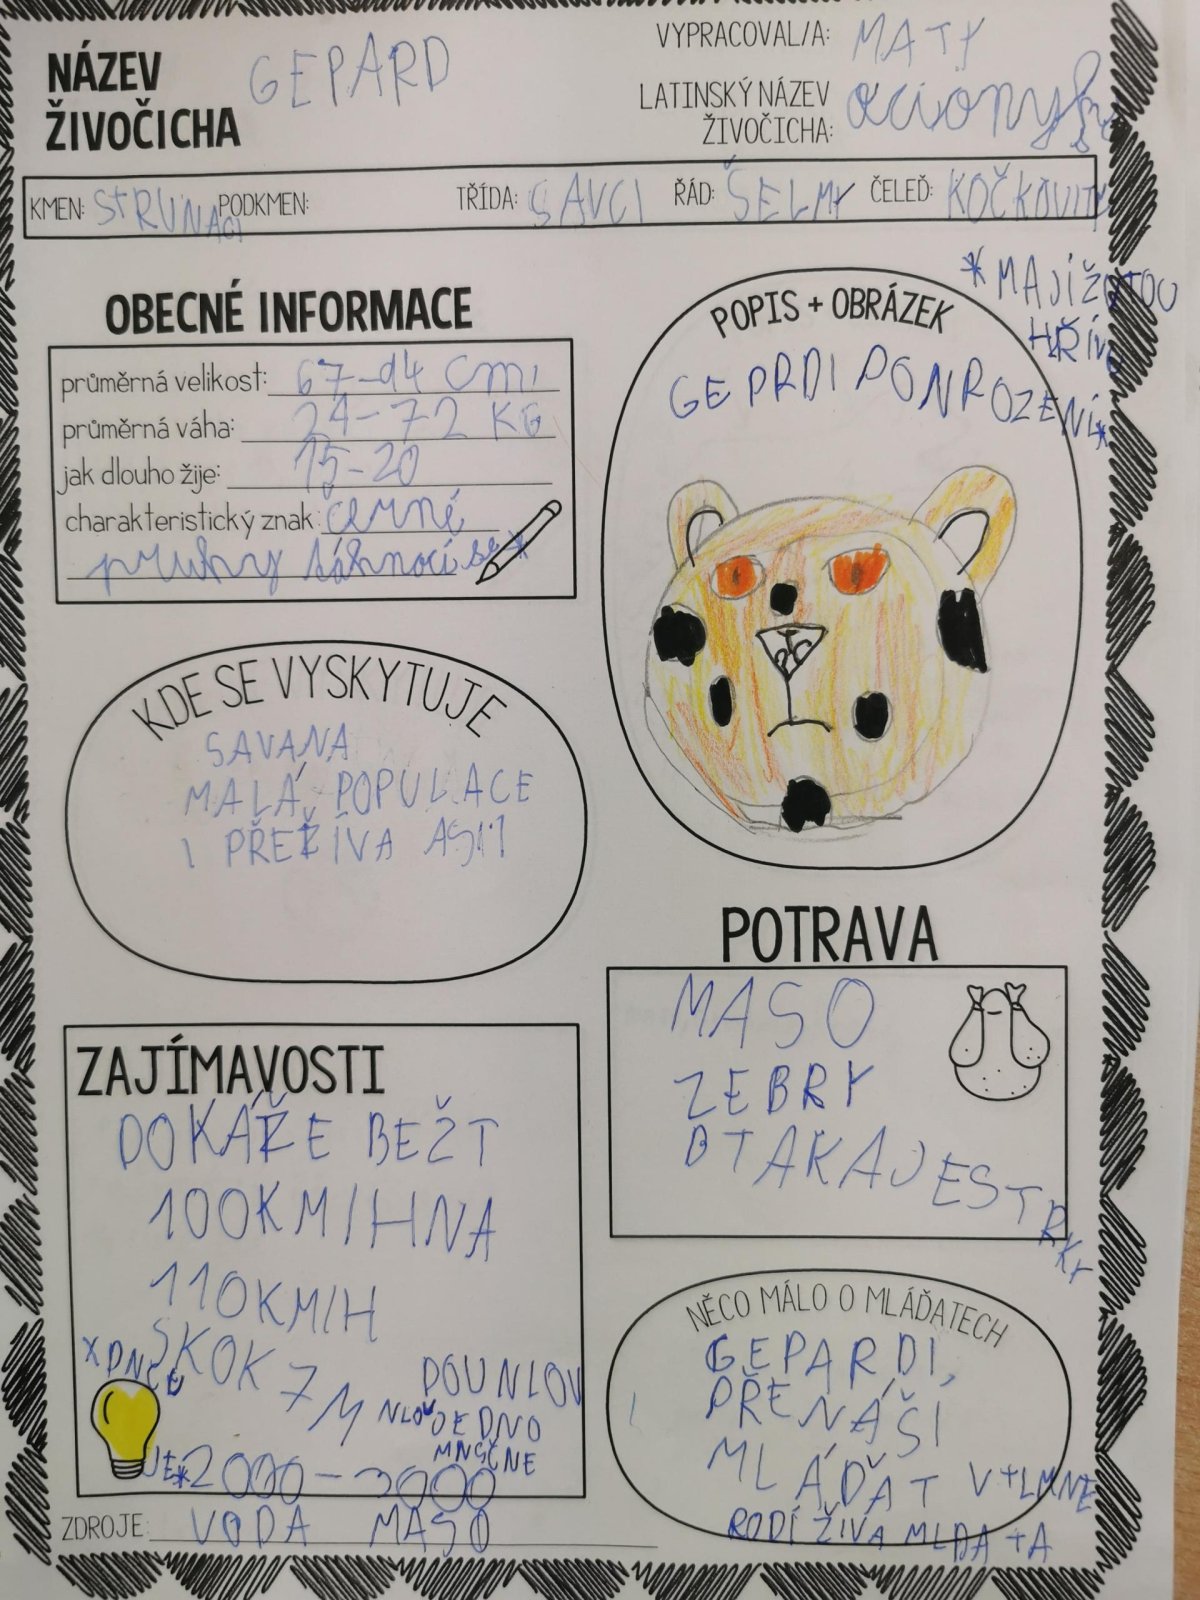 NÁZEV ŽIVOČICHA GEPARD
VYPRACOVAL/A: MATY
LATINSKÝ NÁZEV ŽIVOČICHA:
KMEN: STRUNACI PODKMEN: TŘÍDA: SAVCI ŘÁD: ŠELMY ČELEĎ: KOČKOVITY
OBECNÉ INFORMACE
průměrná velikost: 67-94 cm
průměrná váha: 24-72 KG
jak dlouho žije: 15-20
charakteristický znak: černé
pruhy táhnoucí se*
POPIS + OBRÁZEK
*MAJÍ ŽUTOU
HŘÍVU
GEPRDI PONROZENÍ*
KDE SE VYSKYTUJE
SAVANA
MALÁ POPULACE
I PŘEŽÍVA ASII
POTRAVA
MASO
ZEBRY
BTAKAJESTRKY
ZAJÍMAVOSTI
DOKÁŽE BEŽT
100KM/HNA
110KM/H
SKOK 7M
DOUNLOV
JEDNO
2000-3000
ZDROJE: VODA MASO
NĚCO MÁLO O MLÁĎATECH
GEPARDI,
PŘENÁŠÍ
MLÁĎAT V TLMNE
RODÍ ŽIVA MLDATA